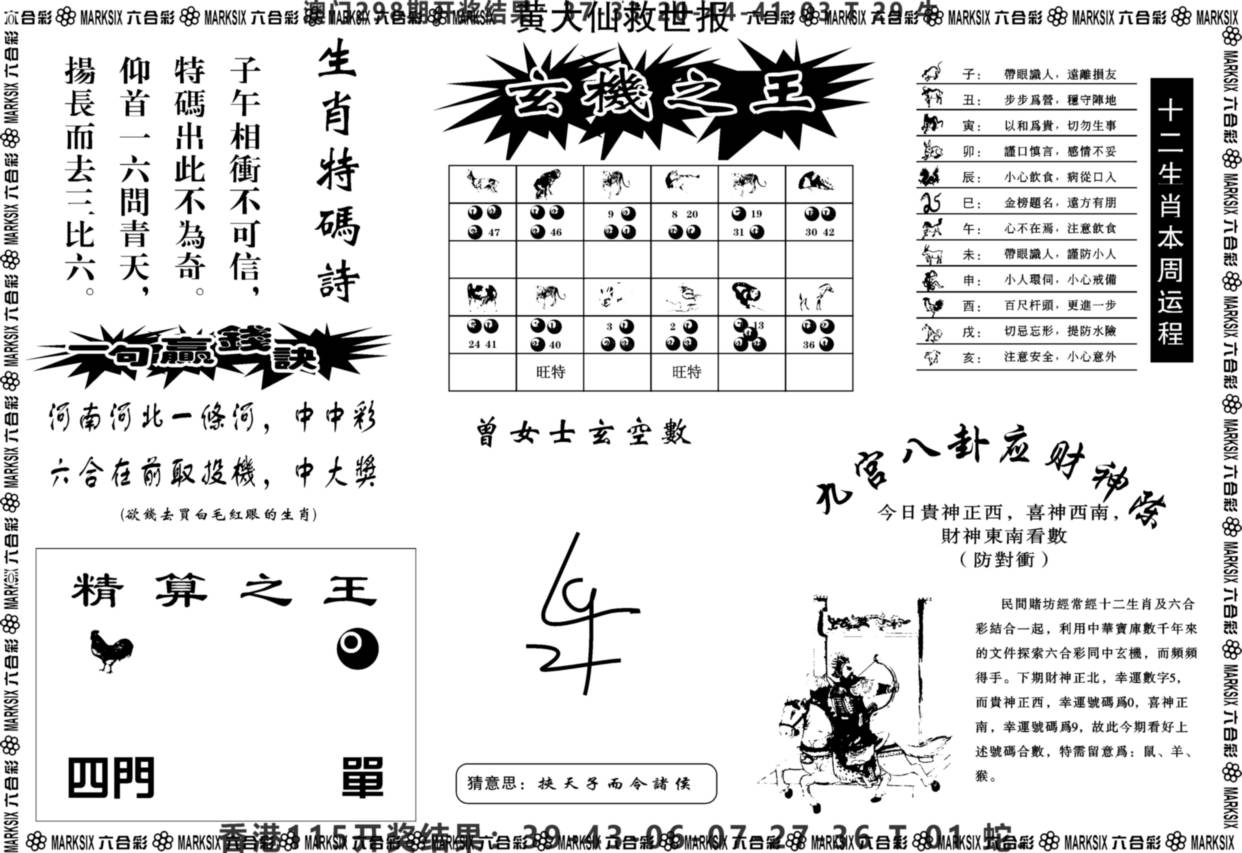 黄大仙救世报
生肖特碼詩
子午相衝不可信，
特碼出此不為奇。
仰首一六問青天，
揚長而去三比六。
一句贏錢訣
河南河北一條河，中中彩
六合在前取投機，中大獎
(欲錢去買白毛紅眼的生肖)
精算之王
四門 單
玄機之王
47 46 9 8 20 19 31 30 42
24 41 40 3 2 13 36
旺特 旺特
曾女士玄空數
猜意思：挾天子而令諸侯
十二生肖本周运程
子： 帶眼識人，遠離損友
丑： 步步爲營，穩守陣地
寅： 以和爲貴，切勿生事
卯： 謹口慎言，感情不妥
辰： 小心飲食，病從口入
巳： 金榜題名，遠方有朋
午： 心不在焉，注意飲食
未： 帶眼識人，謹防小人
申： 小人環伺，小心戒備
酉： 百尺杆頭，更進一步
戌： 切忌忘形，提防水險
亥： 注意安全，小心意外
九宮八卦应财神
今日貴神正西，喜神西南，
財神東南看數
（防對衝）
民間賭坊經常經十二生肖及六合
彩結合一起，利用中華寶庫數千年來
的文件探索六合彩同中玄機，而頻頻
得手。下期財神正北，幸運數字5，
而貴神正西，幸運號碼爲0，喜神正
南，幸運號碼爲9，故此今期看好上
述號碼合數，特需留意爲：鼠、羊、
猴。
香港115开奖结果：39-43-06-07-27-36-T-01 蛇.
MARKSIX 六合彩